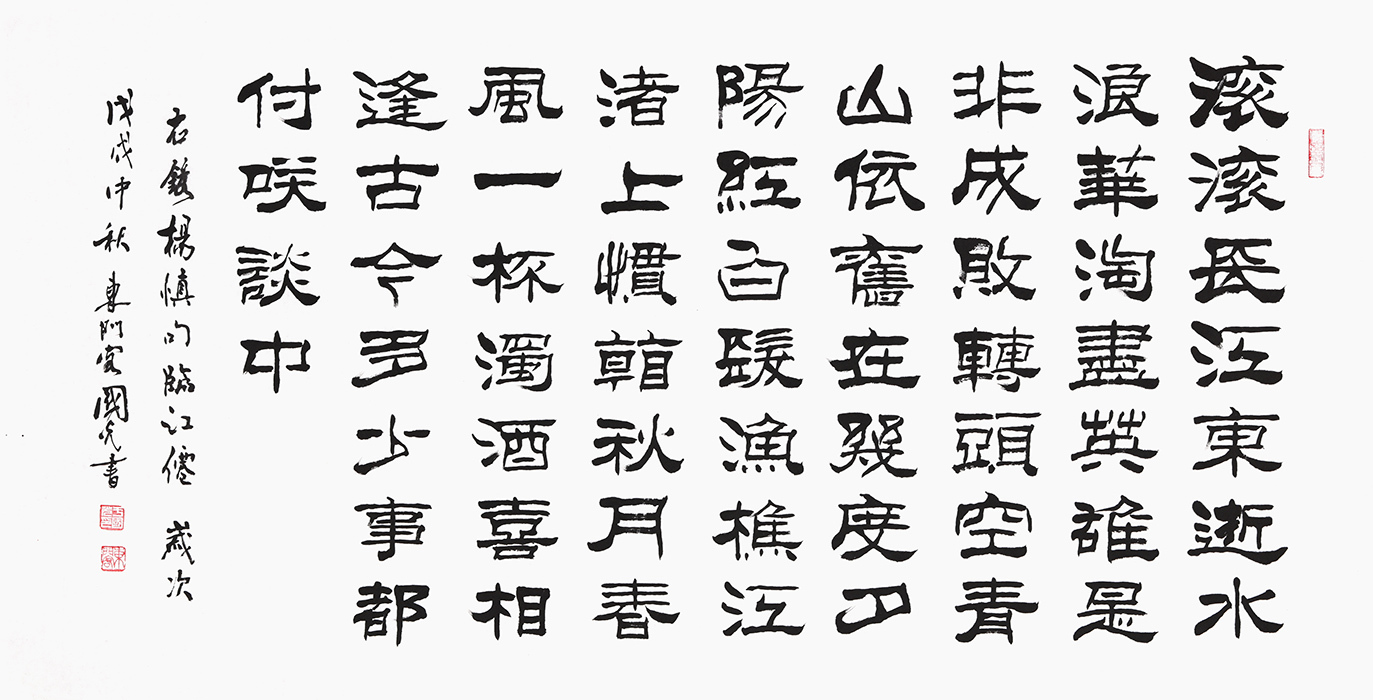 滚滚長江東逝水
浪華淘盡英雄是
非成敗轉頭空青
山依舊在幾度夕
陽紅白髮漁樵江
渚上慣看秋月春
風一杯濁酒喜相
逢古今多少事都
付咲談中
右錄楊慎句臨江僊 歲次
戊戌中秋 東門國光書